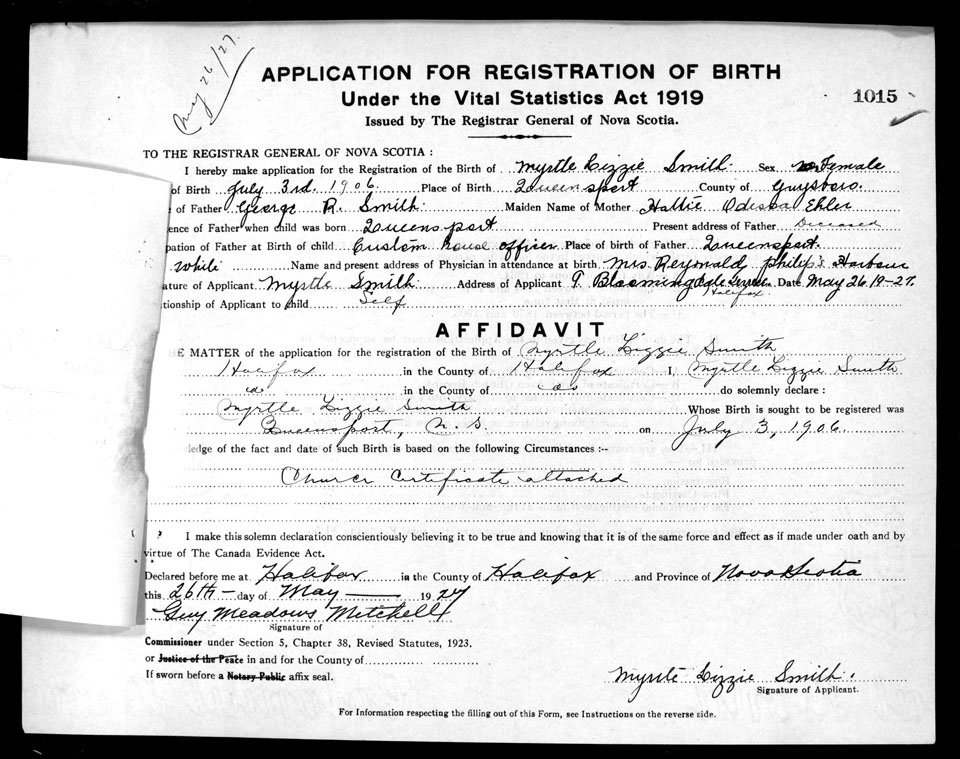 May 26/27.
APPLICATION FOR REGISTRATION OF BIRTH
Under the Vital Statistics Act 1919
1015
Issued by The Registrar General of Nova Scotia.
TO THE REGISTRAR GENERAL OF NOVA SCOTIA :
I hereby make application for the Registration of the Birth of Myrtle Lizzie Smith. Sex Female
of Birth July 3rd. 1906. Place of Birth Queensport County of Guysboro.
of Father George R. Smith. Maiden Name of Mother Hattie Odessa Ehler
ence of Father when child was born Queensport Present address of Father Deceased
pation of Father at Birth of child Custom house officer Place of birth of Father Queensport.
White Name and present address of Physician in attendance at birth Mrs. Reynold Philip's Harbour
ature of Applicant Myrtle Smith Address of Applicant Bloomingdale Terrace. Date May 26 19-27.
Halifax.
tionship of Applicant to child Self
AFFIDAVIT
E MATTER of the application for the registration of the Birth of Myrtle Lizzie Smith
Halifax in the County of Halifax I, Myrtle Lizzie Smith
do in the County of do do solemnly declare :
Myrtle Lizzie Smith Whose Birth is sought to be registered was
Queensport, N. S. on July 3, 1906.
ledge of the fact and date of such Birth is based on the following Circumstances :--
Church Certificate attached
I make this solemn declaration conscientiously believing it to be true and knowing that it is of the same force and effect as if made under oath and by
virtue of The Canada Evidence Act.
Declared before me at Halifax in the County of Halifax and Province of Nova Scotia
this 26th- day of May 1927
Guy Meadows Mitchell
Signature of
Commissioner under Section 5, Chapter 38, Revised Statutes, 1923.
or Justice of the Peace in and for the County of
If sworn before a Notary Public affix seal.
Myrtle Lizzie Smith.
Signature of Applicant.
For Information respecting the filling out of this Form, see Instructions on the reverse side.